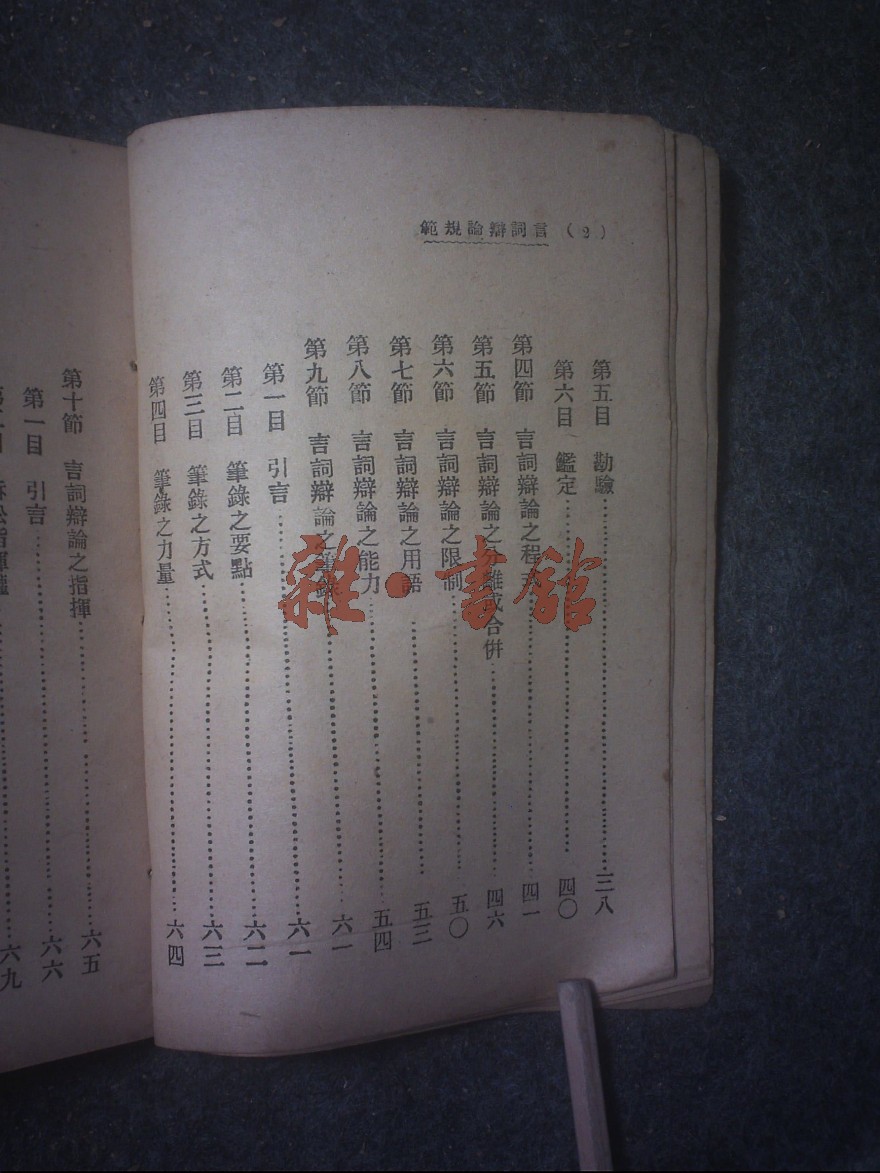 範規論辯詞言 (2)
第五目 勘驗……三八
第六目 鑑定……四〇
第四節 言詞辯論之程式……四一
第五節 言詞辯論之分離或合併……四六
第六節 言詞辯論之限制……五〇
第七節 言詞辯論之用語……五三
第八節 言詞辯論之能力……五四
第九節 言詞辯論之筆錄……六一
第一目 引言……六一
第二目 筆錄之要點……六二
第三目 筆錄之方式……六三
第四目 筆錄之力量……六四
第十節 言詞辯論之指揮……六五
第一目 引言……六六
訴訟指揮權……六九
雜·書館